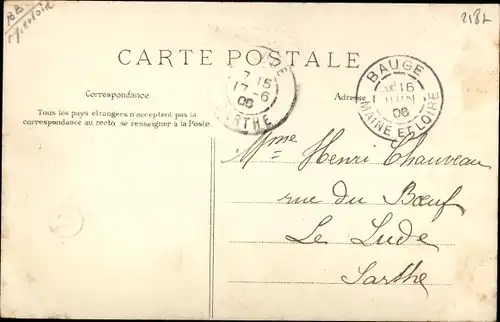 218L
CARTE POSTALE
Correspondance
Tous les pays étrangers n'acceptent pas la
correspondance au recto, se renseigner à la Poste.
Adresse
7 15
17 -6
06
SARTHE
BAUGÉ
16
JUIN
06
MAINE ET LOIRE
Mme Henri Chauveau
rue du Bœuf
Le Lude
Sarthe